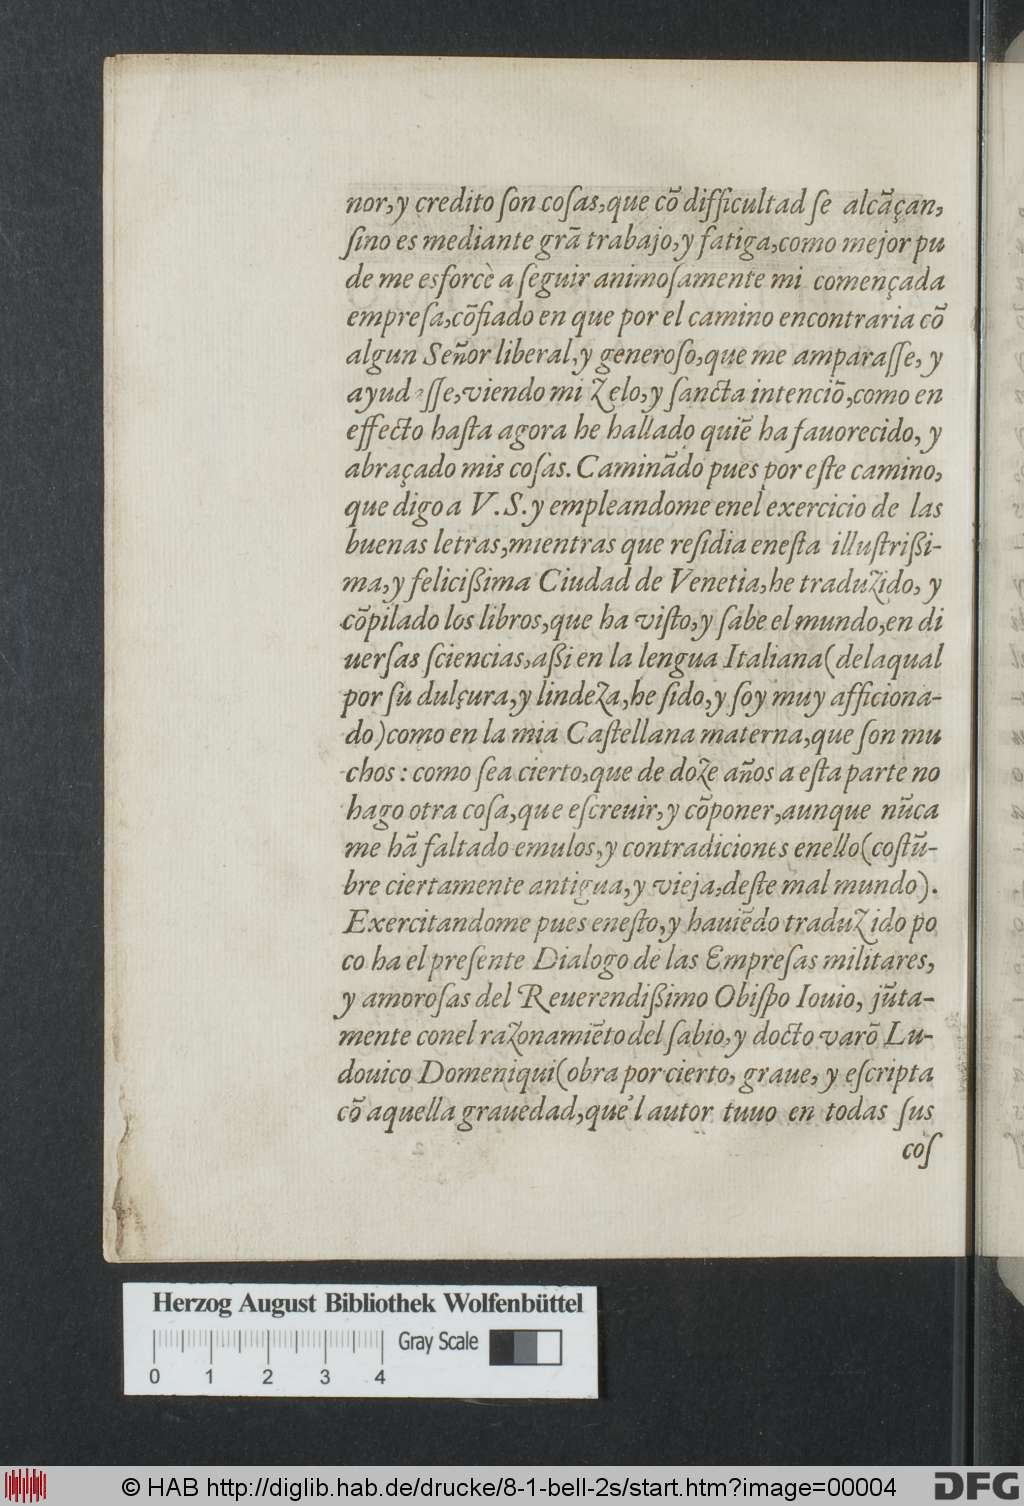 nor,y credito ſon coſas,que cõ difficultad ſe alcãçan,
ſino es mediante grã trabajo,y fatiga,como mejor pu
de me esforcè a ſeguir animoſamente mi començada
empreſa,cõfiado en que por el camino encontraria cõ
algun Señor liberal,y generoſo,que me amparaſſe, y
ayudaſſe,viendo mi zelo,y ſancta intenciõ,como en
effecto haſta agora he hallado quiẽ ha fauorecido, y
abraçado mis coſas. Caminãdo pues por eſte camino,
que digo a V.S.y empleandome enel exercicio de las
buenas letras,mientras que reſidia eneſta illuſtrißi-
ma,y felicißima Ciudad de Venetia,he traduzido, y
cõpilado los libros,que ha viſto,y ſabe el mundo,en di
uerſas ſciencias,aßi en la lengua Italiana(delaqual
por ſu dulçura,y lindeza,he ſido,y ſoy muy afficiona-
do)como en la mia Caſtellana materna,que ſon mu
chos: como ſea cierto,que de doze años a eſta parte no
hago otra coſa,que eſcreuir,y cõponer,aunque nũca
me hã faltado emulos,y contradiciones enello(coſtũ-
bre ciertamente antigua,y vieja,deſte mal mundo).
Exercitandome pues eneſto,y hauiẽdo traduzido po
co ha el preſente Dialogo de las Empreſas militares,
y amoroſas del Reuerendißimo Obiſpo Iouio, jũta-
mente conel razonamiẽto del ſabio,y docto varõ Lu-
douico Domeniqui(obra por cierto, graue, y eſcripta
cõ aquella grauedad,que'l autor tuuo en todas ſus
coſ
Herzog August Bibliothek Wolfenbüttel
Gray Scale
0 1 2 3 4
© HAB http://diglib.hab.de/drucke/8-1-bell-2s/start.htm?image=00004
DFG